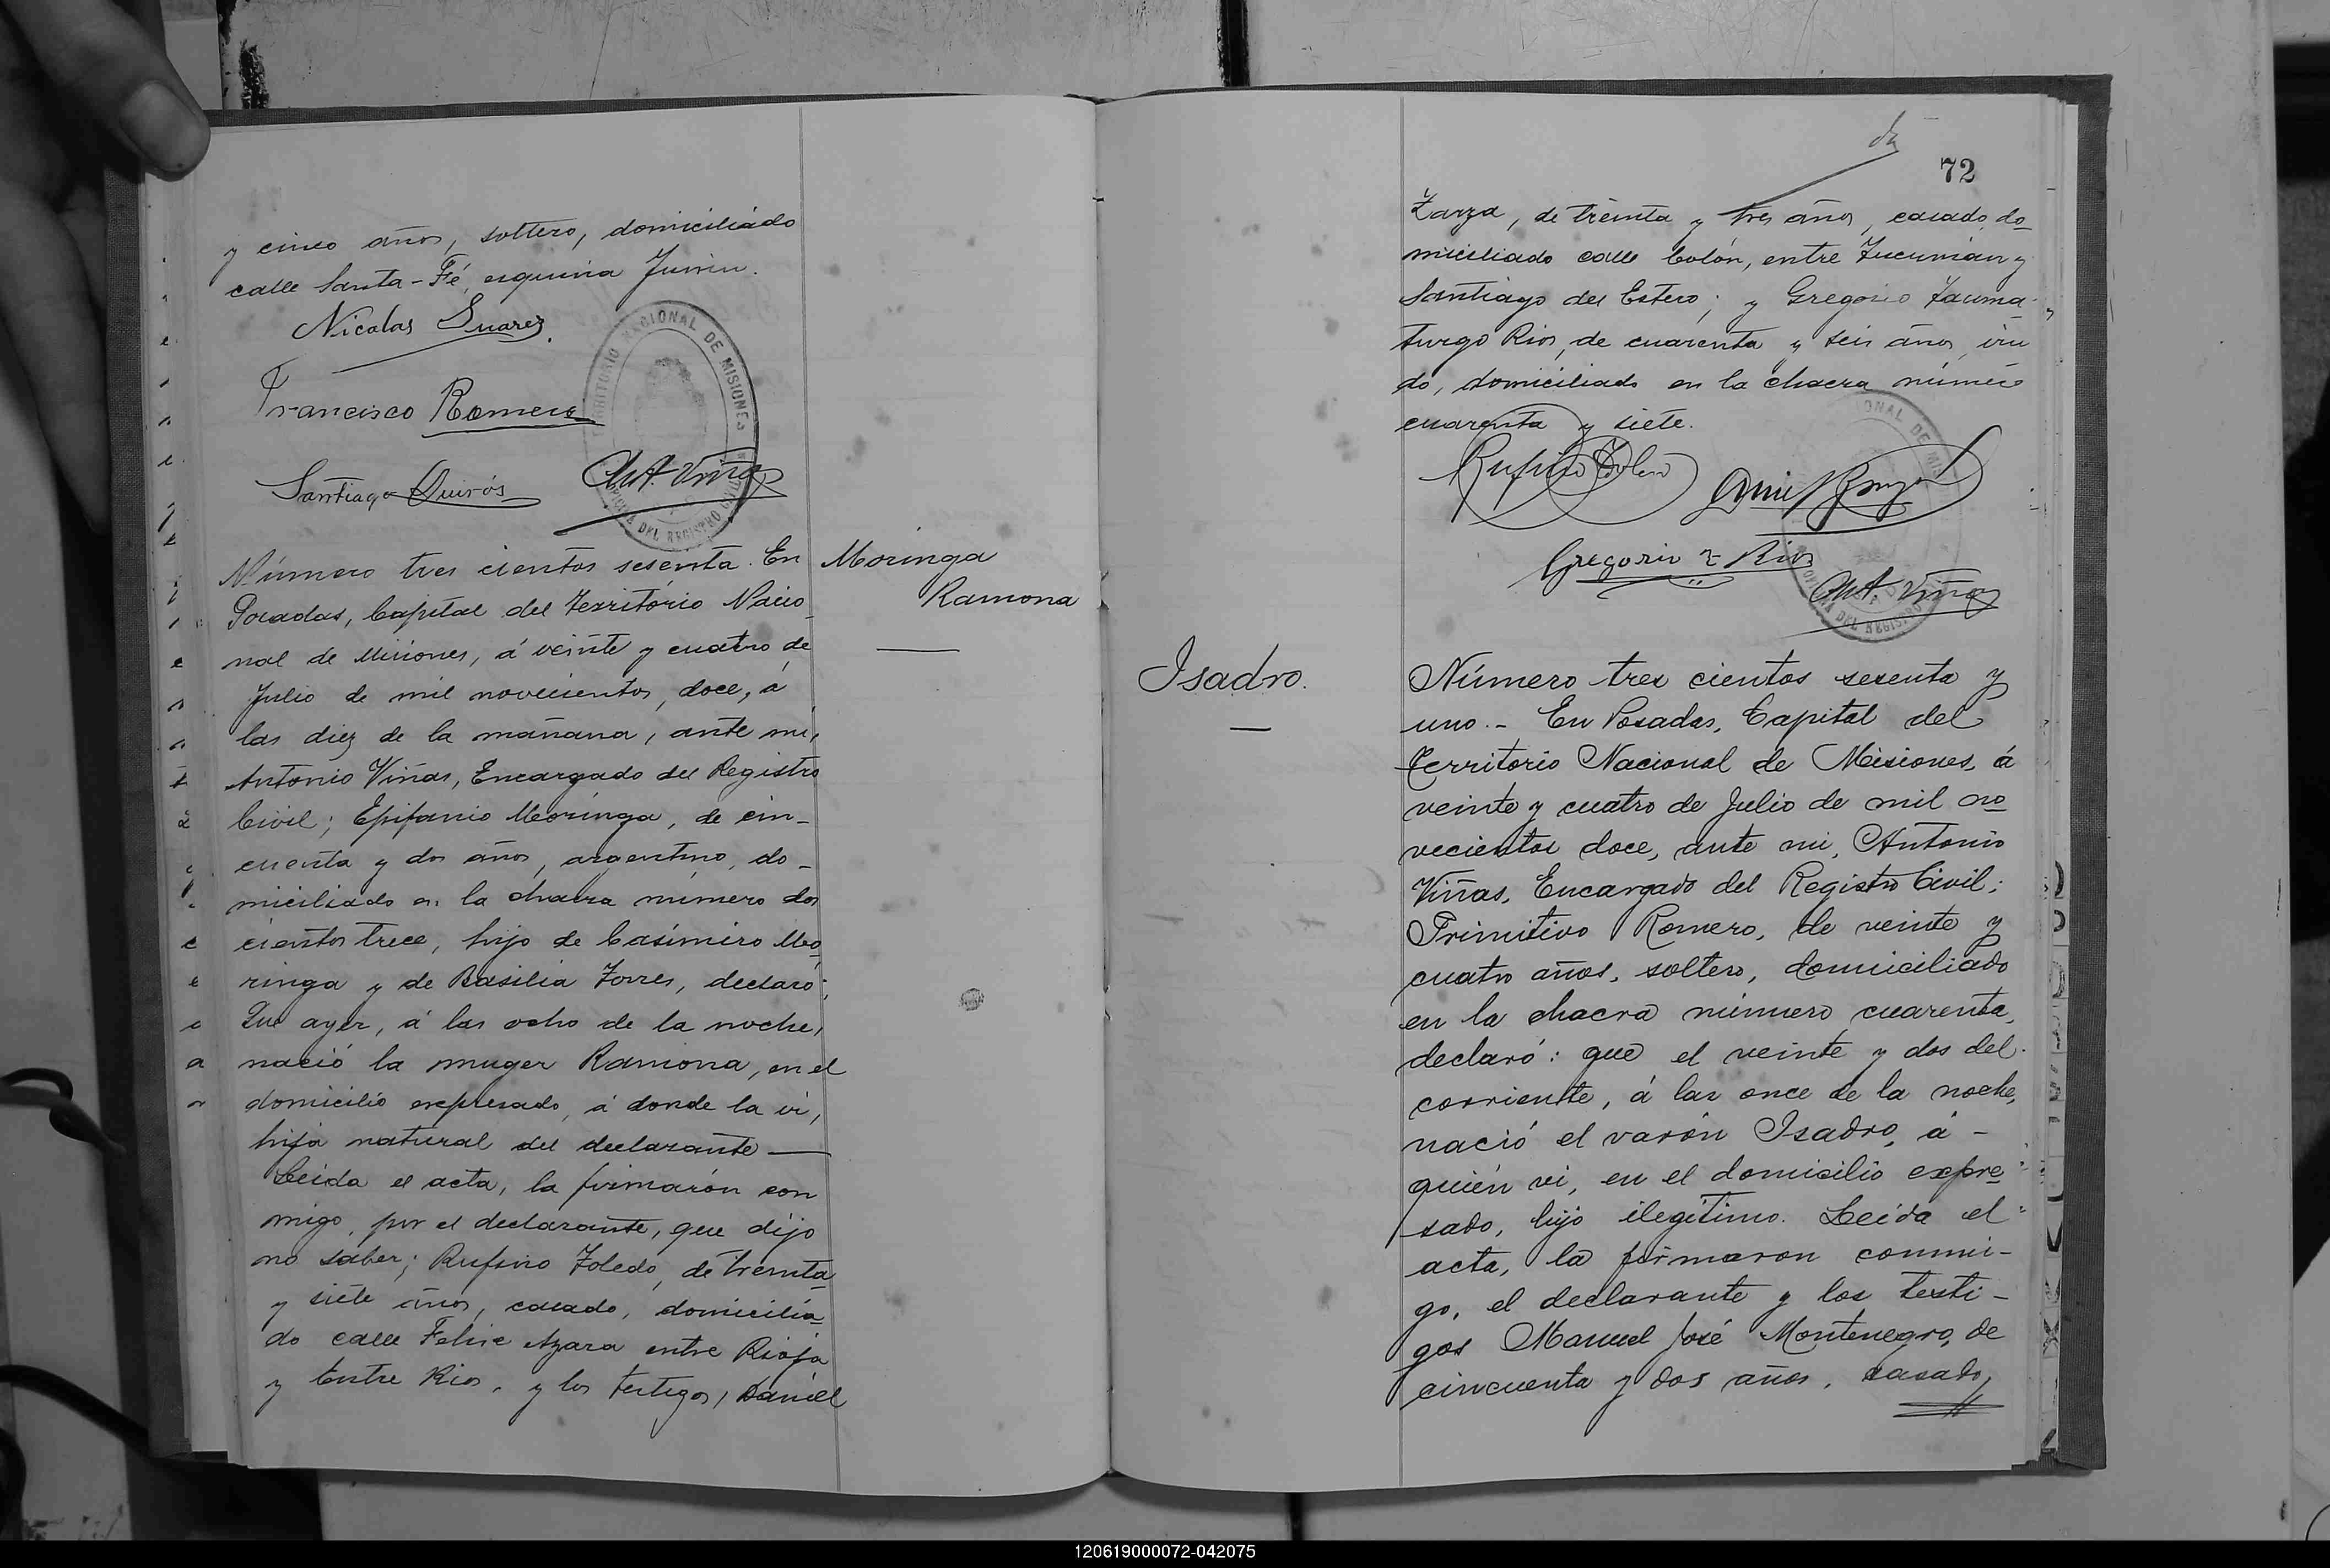 y cinco años, soltero, domiciliado
calle Santa-Fé, esquina Junin.
Nicolas Suarez.
Francisco Romero
Santiago Quirós
Ant. Viñas
TERRITORIO NACIONAL DE MISIONES
OFICINA DEL REGISTRO CIVIL
Número tres cientos sesenta. En
Posadas, Capital del Território Nacio
nal de Misiones, á veinte y cuatro de
Julio de mil novecientos, doce, á
las diez de la mañana, ante mi,
Antonio Viñas, Encargado del Registro
Civil; Epifanio Moringa, de cin-
cuenta y dos años, argentino, do-
miciliado en la chacra número dos
cientos trece, hijo de Casimiro Mo
ringa y de Basilia Torres, declaró:
Que ayer, á las ocho de la noche,
nació la muger Ramona, en el
domicilio expresado, á donde la vi,
hija natural del declarante
Leida el acta, la firmarón con
migo, por el declarante, que dijo
no saber; Rufino Toledo, de treinta
y siete años, casado, domicilia
do calle Felix Azara entre Rioja
y Entre Rios, y los testigos, Daniel
Moringa
Ramona
72
Zarza, de treinta y tres años, casado, do
miciliado calle Colón, entre Tucumán y
Santiago del Estero; y Gregorio Tauma
turgo Rios, de cuarenta y seis años, viu
do, domiciliado en la chacra número
cuarenta y siete.
Rufino Toledo
Gregorio T Rios
Ant. Viñas
Isadro.
Número tres cientos sesenta y
uno.- En Posadas, Capital del
Territorio Nacional de Misiones, á
veinte y cuatro de Julio de mil no
vecientos doce, ante mi, Antonio
Viñas, Encargado del Registro Civil;
Primitivo Romero, de veinte y
cuatro años, soltero, domiciliado
en la chacra número cuarenta,
declaró: que el veinte y dos del
corriente, á las once de la noche,
nació el varón Isadro, á -
quién vi, en el domicilio expre
sado, hijo ilegítimo. Leida el
acta, la firmaron conmi-
go, el declarante y los testi-
gos Manuel José Montenegro, de
cincuenta y dos años, casado,
120619000072-042075